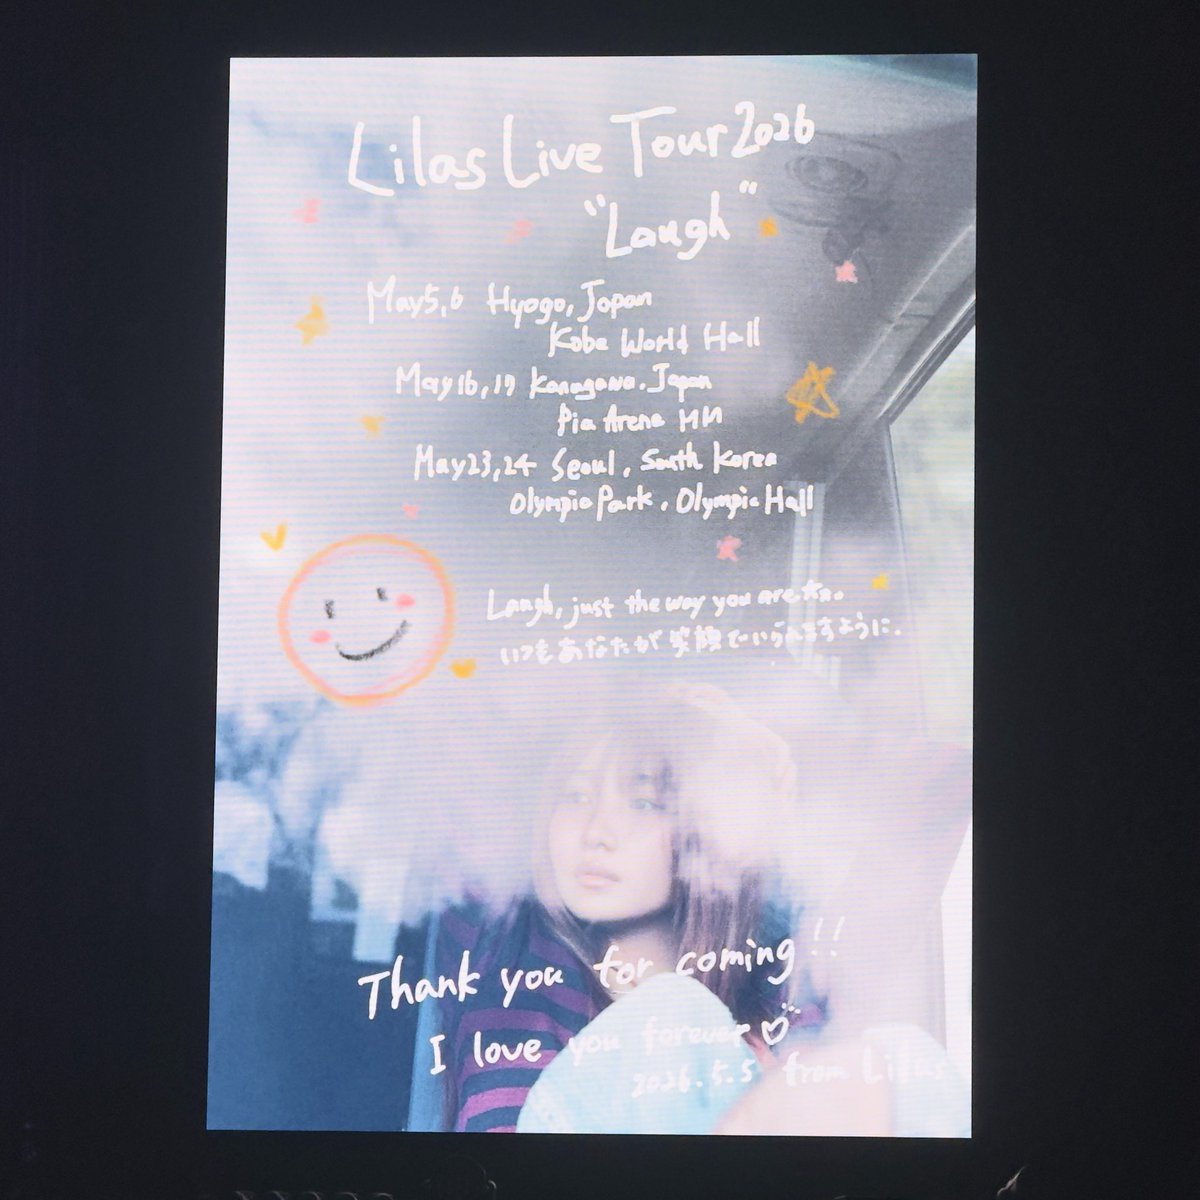 Lilas Live Tour 2026
"Laugh"
May 5,6 Hyogo, Japan
Kobe World Hall
May 16,17 Kanagawa. Japan
Pia Arena MM
May 23,24 Seoul, South Korea
Olympic Park, Olympic Hall
Laugh, just the way you are
いつもあなたが笑顔でいられますように.
Thank you for coming!!
I love you forever♡
2026.5.5 from Lilas